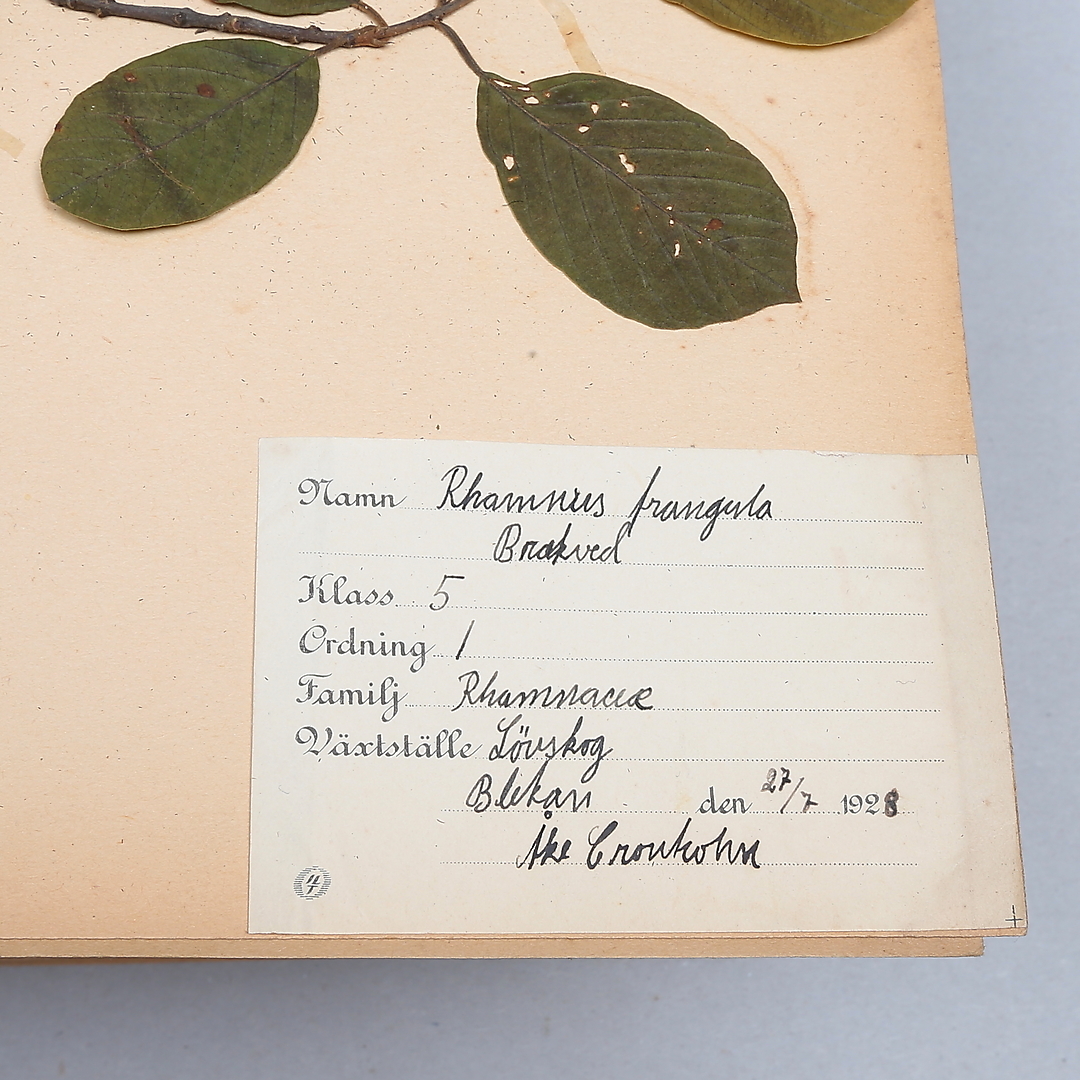 Namn Rhamnus frangula
Brakved
Klass 5
Ordning 1
Familj Rhamnaceæ
Växtställe Lövskog
Blekan den 27/7 1928
Åke Cronholm